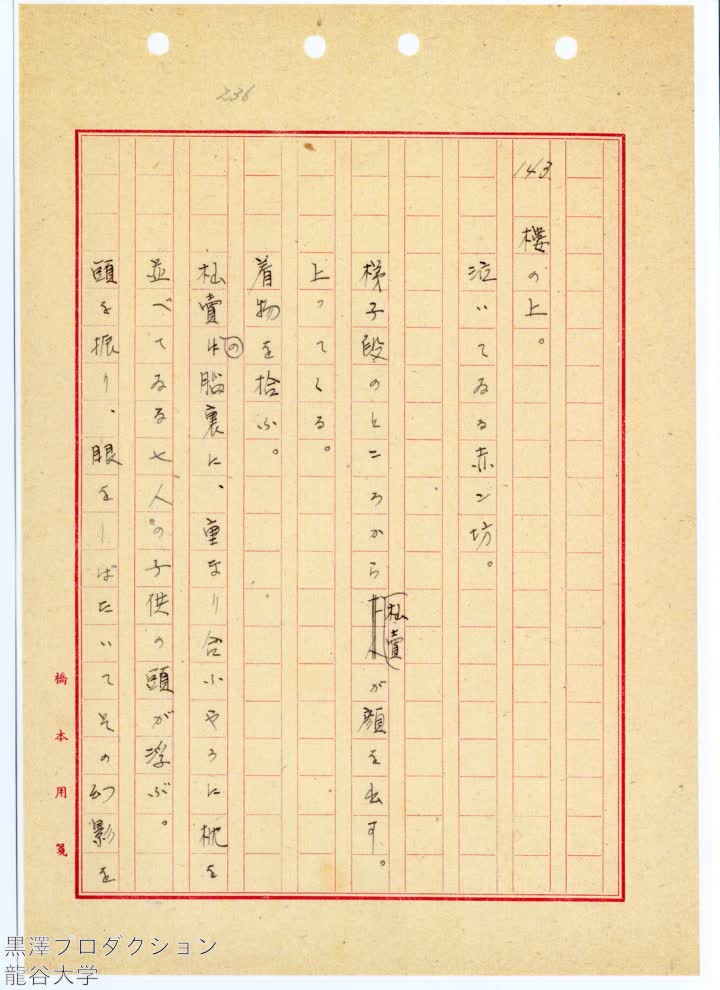 236
143
樓の上。
泣いてゐる赤ン坊。
梯子段のところから杣賣が顔を出す。
上ってくる。
着物を拾ふ。
杣賣の腦裏に、重なり合ふやうに枕を
並べてゐる七人の子供の頭が浮ぶ。
頭を振り、眼をしばたいてその幻影を
橋本用箋
黒澤プロダクション
龍谷大学